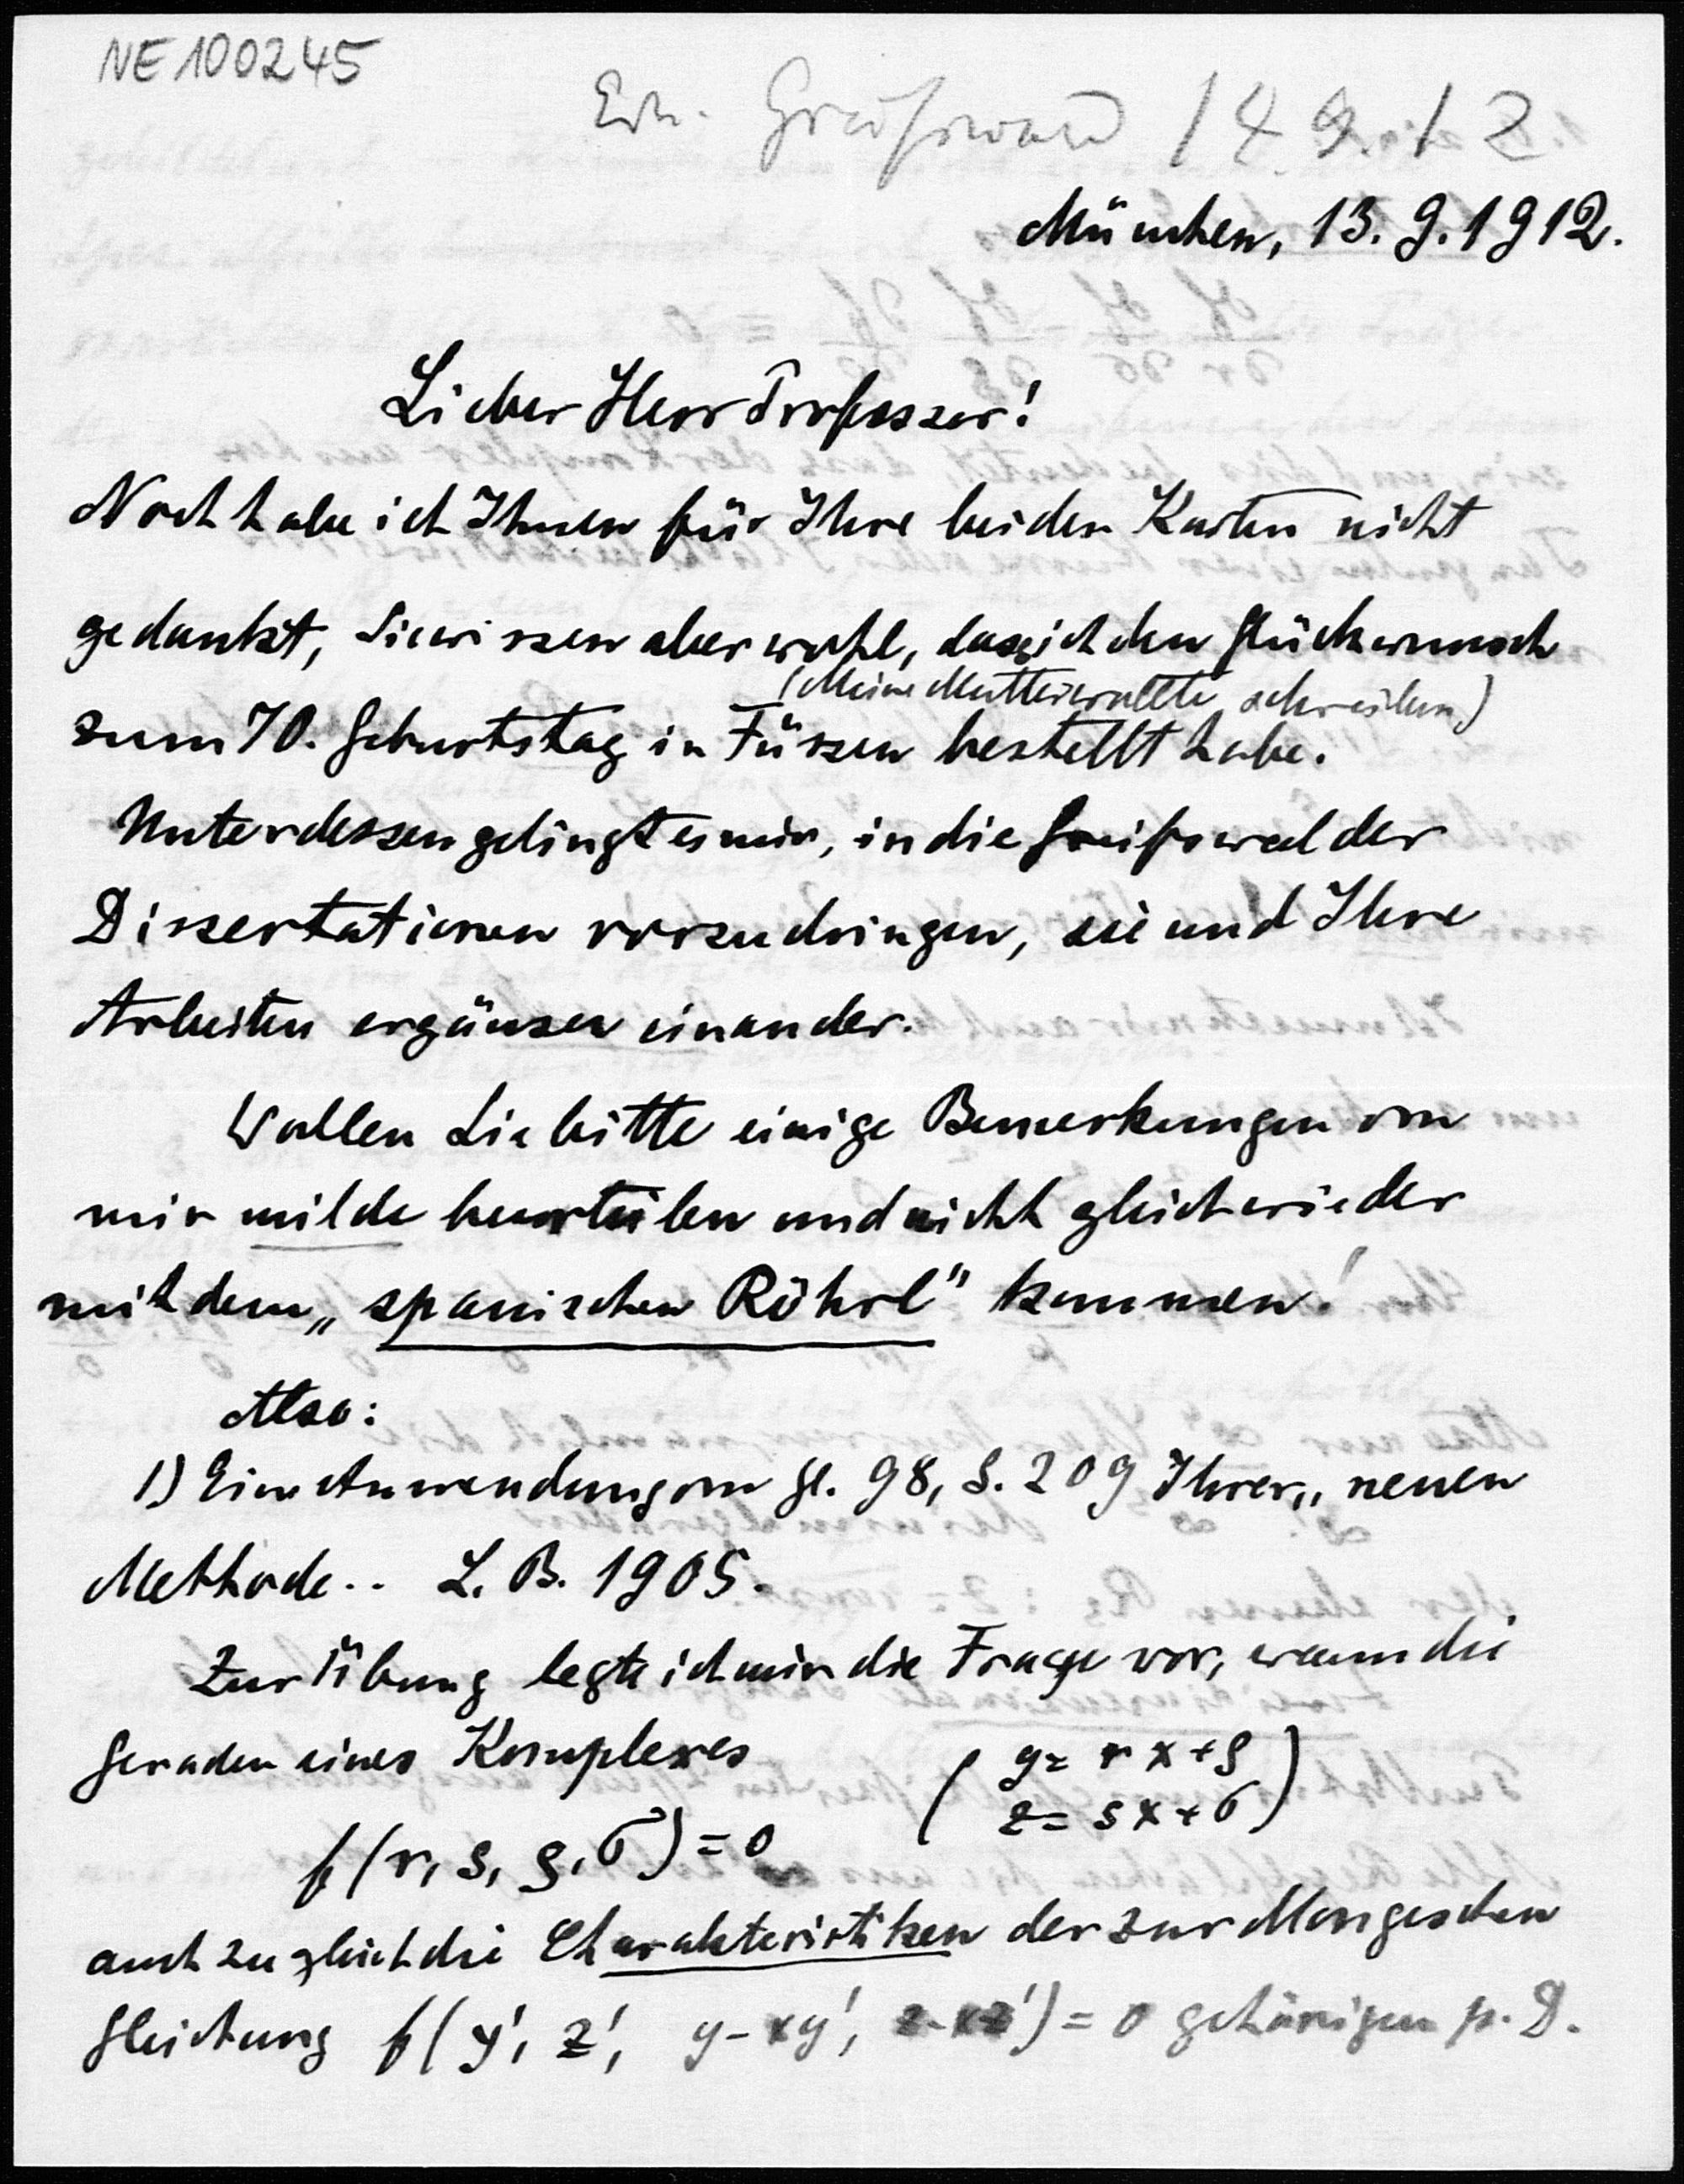 NE 100245
Erh. Greifswald 14.9.12
München, 13.9.1912.
Lieber Herr Professor!
Noch habe ich Ihnen für Ihre beiden Karten nicht
gedankt, Sie wissen aber wohl, dass ich den Glückwunsch
(Meine Mutter wollte schreiben)
zum 70. Geburtstag in Füssen bestellt habe.
Unterdessen gelingt es mir, in die Greifswalder
Dissertationen vorzudringen, sie und Ihre
Arbeiten ergänzen einander.
Wollen Sie bitte einige Bemerkungen von
mir milde beurteilen und nicht gleich wieder
mit dem „spanischen Röhrl" kommen!
Also:
1) Eine Anwendung von Gl. 98, S. 209 Ihrer „neuen
Methode.. L. B. 1905.
Zur Übung legte ich mir die Frage vor, wann die
Geraden eines Komplexes ( y = r x + ϱ
z = s x + σ )
f(r, s, ϱ, σ) = 0
auch zugleich die Charakteristiken der zur Mongeschen
Gleichung f(y', z', y - xy', z - xz') = 0 gehörigen p. D.